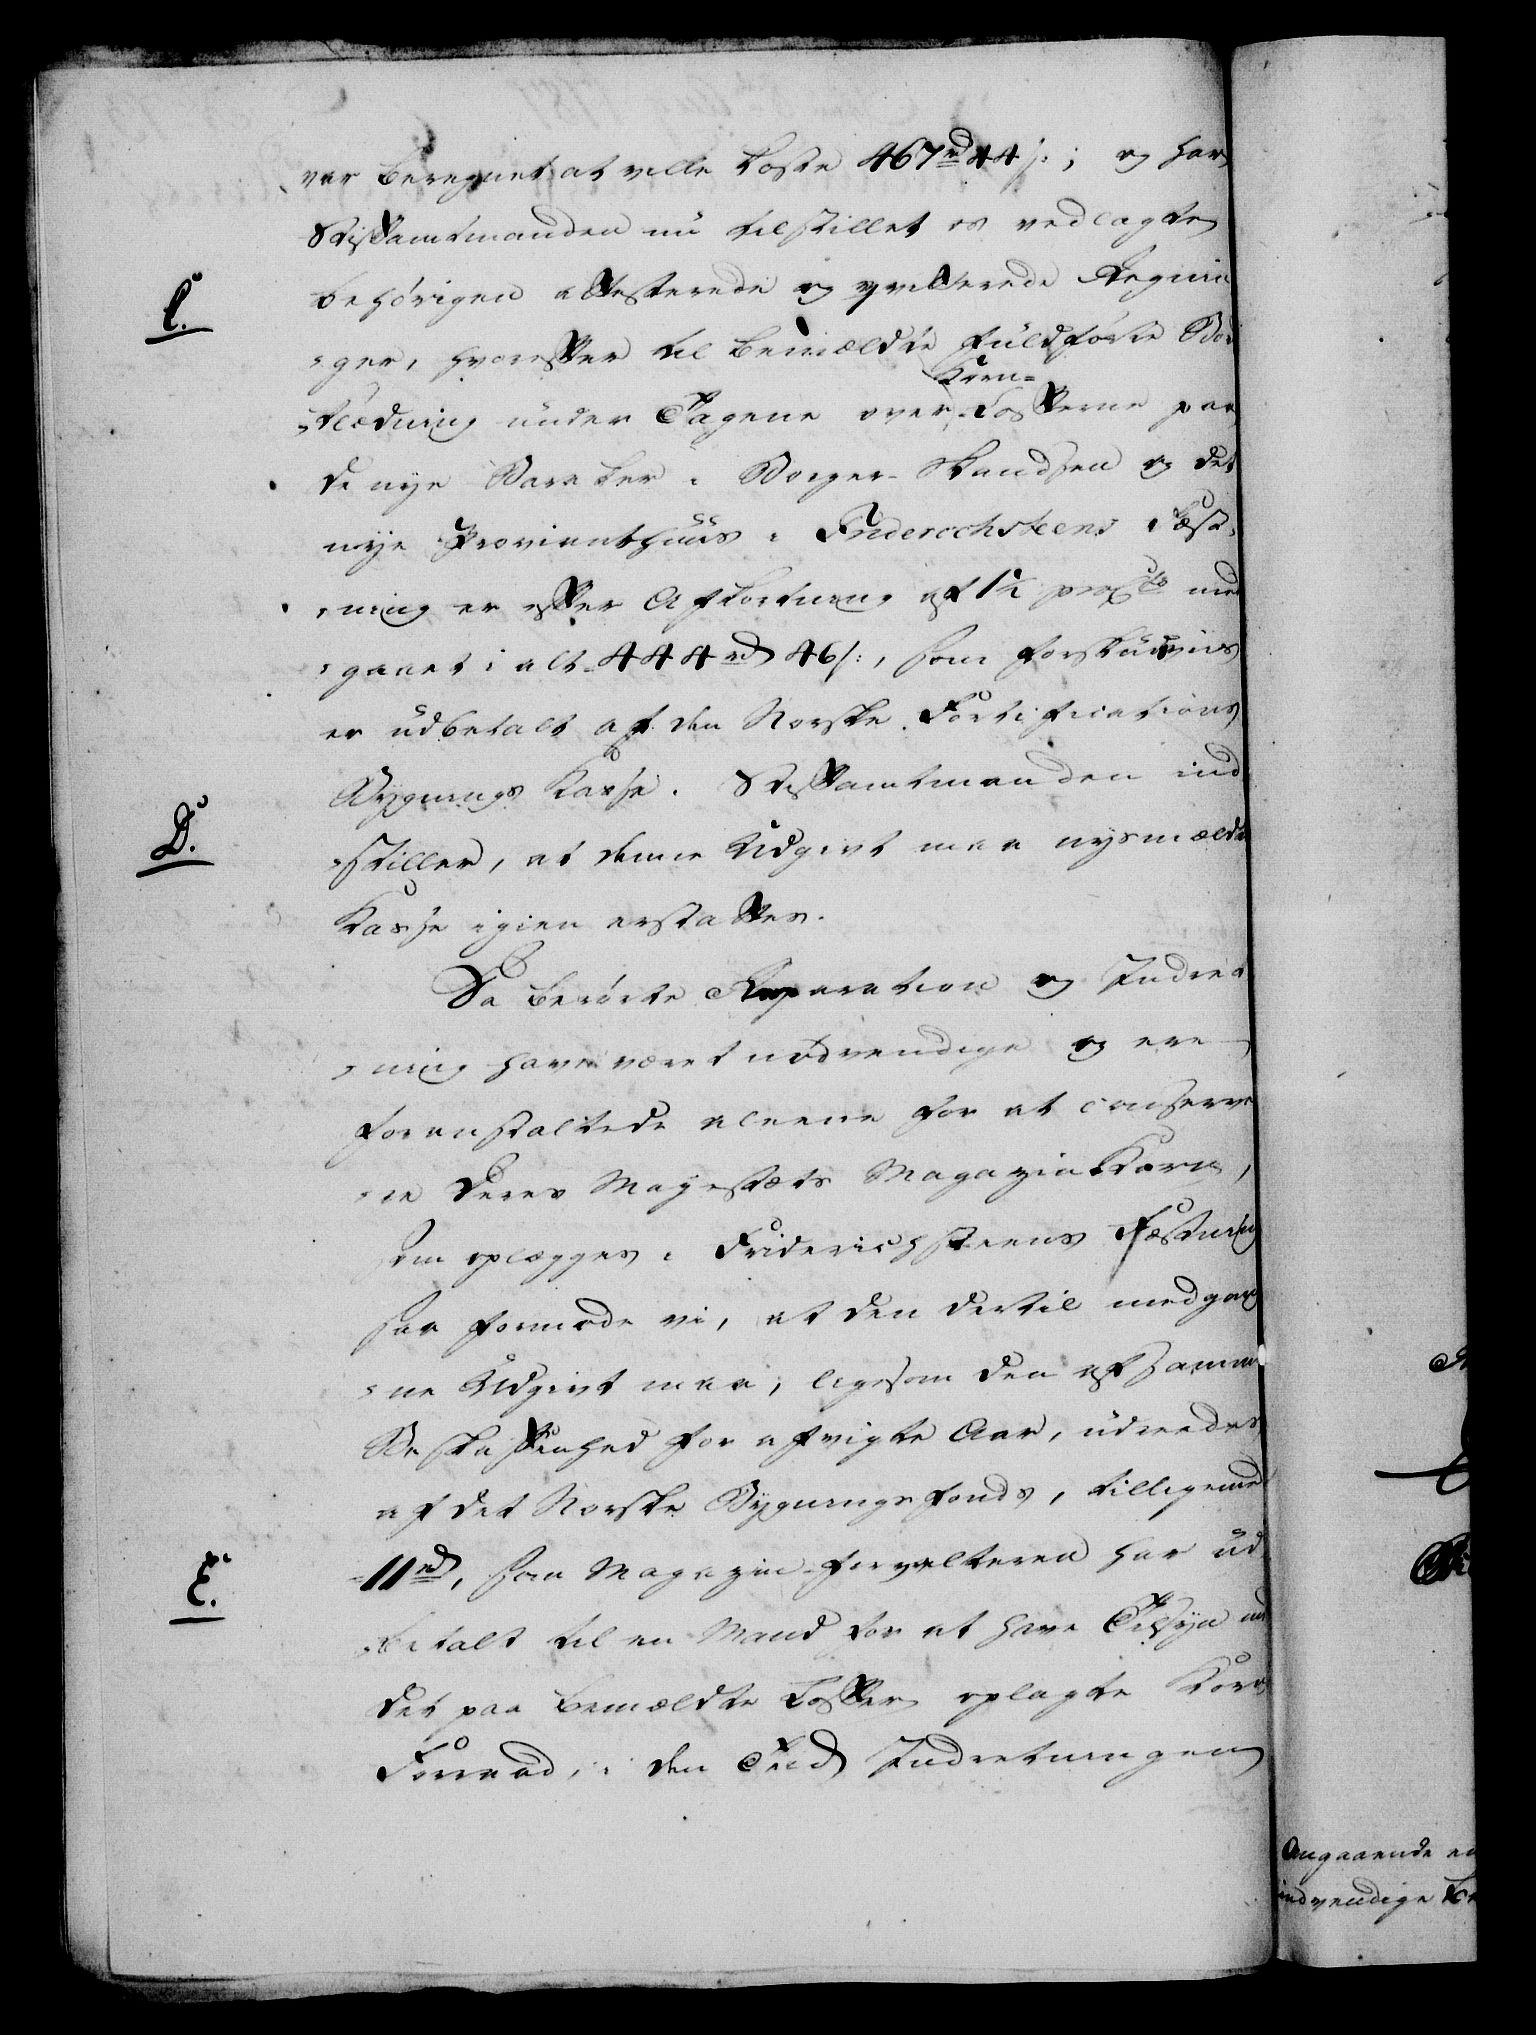 var beregnet at ville koste 467rd 44 s:; og har
Stiftamtmanden nu tilstillet os vedlagte
C.
behørigen attesterede og qvitterede Regnin
"ger, hvorefter til bemældte fuldførte Bord
Korn=
"klædning under Tagene over Lofterne paa
de nye Baraker i Borger-Skandsen og det
nye Provianthuus i Friderichsteens Fæst,
"ning er efter Afkortning af 1½ procto med
"gaaet i alt 444rd 46 s:, som forskudsviis
er udbetalt af den Norske Fortifications
Bygnings Kasse. Stiftamtmanden ind
D.
"stiller, at denne Udgivt maa nysmældte
Kasse igien erstattes.
Da berørte Reparation og Indret
"ning have været nødvendige og ere
foranstaltede aleene for at conserve
"re Deres Majestæts Magazin Korn,
som oplægges i Friderichsteens Fæstning
saa formode vi, at den dertil medgaa
"ne Udgivt maa, ligesom den af samme
Beskaffenhed for afvigte Aar, udreedes
af det Norske Bygnings fonds, tilligemed
E.
11rd, som Magazin-forvalteren har ud
"betalt til en Mand for at have Tilsyn med
det paa bemældte Lofter oplagte Korn
Forraad, i den Tiid Indretningen
Angaaende
indvendige